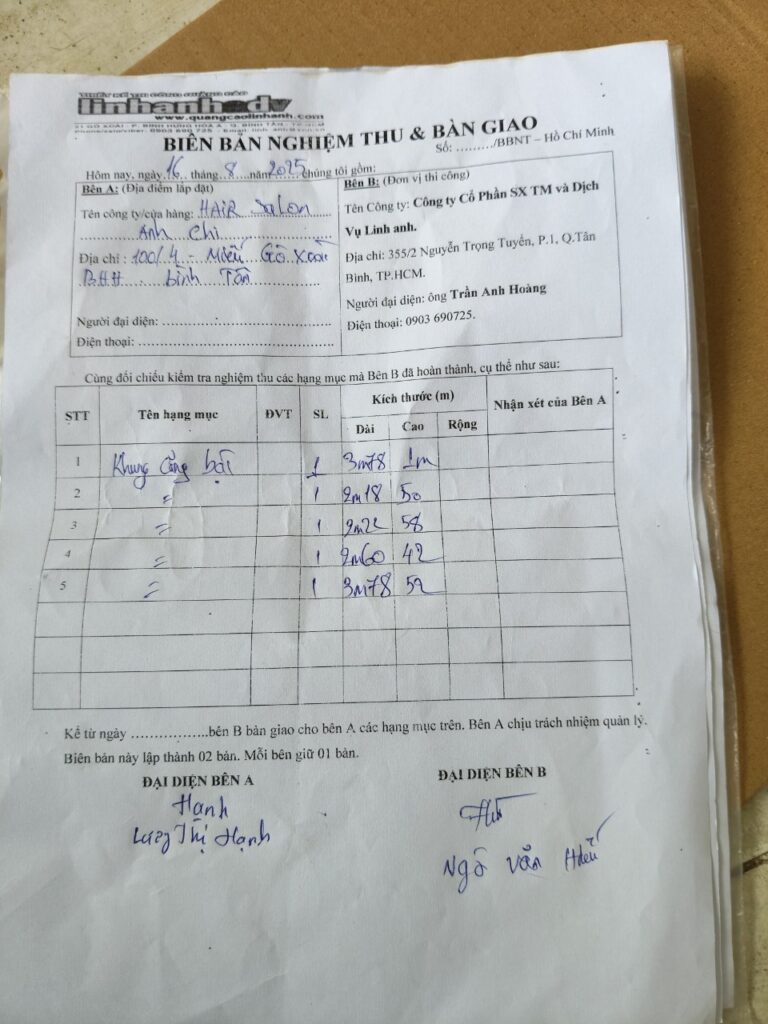 THIẾT KẾ THI CÔNG QUẢNG CÁO
linhanhadv
www.quangcaolinhanh.com
21 GÒ XOÀI - P. BÌNH HƯNG HÒA A - Q. BÌNH TÂN - TP.HCM
Phone/zalo/viber: 0903 690 725 - Email:
BIÊN BẢN NGHIỆM THU & BÀN GIAO
Số: ………/BBNT – Hồ Chí Minh
Hôm nay, ngày 16 tháng 8 năm 2025 chúng tôi gồm:
Bên A: (Địa điểm lắp đặt)
Tên công ty/cửa hàng: HAIR Salon
Anh Chi
Địa chỉ : 100/4 - Miếu Gò Xoài
BHH Bình Tân
Người đại diện: ……………………………
Điện thoại: ……………………………
Bên B: (Đơn vị thi công)
Tên Công ty: Công ty Cổ Phần SX TM và Dịch
Vụ Linh anh.
Địa chỉ: 355/2 Nguyễn Trọng Tuyển, P.1, Q.Tân
Bình, TP.HCM.
Người đại diện: ông Trần Anh Hoàng
Điện thoại: 0903 690725.
Cùng đối chiếu kiểm tra nghiệm thu các hạng mục mà Bên B đã hoàn thành, cụ thể như sau:
STT Tên hạng mục ĐVT SL Kích thước (m) Nhận xét của Bên A
Dài Cao Rộng
1 Khung căng bạt 1 3m78 1m
2 = 1 2m18 50
3 = 1 2m22 58
4 = 1 2m60 42
5 = 1 3m78 52
Kể từ ngày ……………..bên B bàn giao cho bên A các hạng mục trên. Bên A chịu trách nhiệm quản lý.
Biên bản này lập thành 02 bản. Mỗi bên giữ 01 bản.
ĐẠI DIỆN BÊN A
Hạnh
Thị Hạnh
ĐẠI DIỆN BÊN B
Ngô Văn